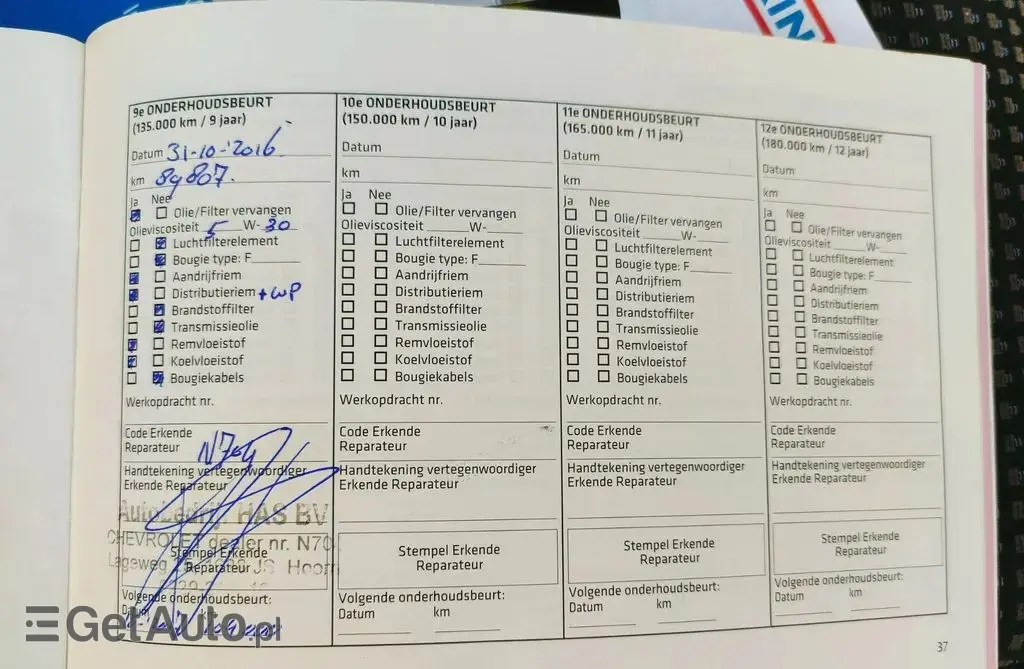 9e ONDERHOUDSBEURT
(135.000 km / 9 jaar)
Datum 31-10-'2016
km 89807.
Ja Nee
Olie/Filter vervangen
Olieviscositeit 5 W- 30
Luchtfilterelement
Bougie type: F
Aandrijfriem
Distributieriem + WP
Brandstoffilter
Transmissieolie
Remvloeistof
Koelvloeistof
Bougiekabels
Werkopdracht nr.
Code Erkende
Reparateur N704
Handtekening vertegenwoordiger
Erkende Reparateur
Autobedrijf HAS BV
CHEVROLET dealer nr. N70
Stempel Erkende
Lageweg JS Hoorn
Reparateur
Volgende onderhoudsbeurt:
Datum km
10e ONDERHOUDSBEURT
(150.000 km / 10 jaar)
Datum
km
Ja Nee
Olie/Filter vervangen
Olieviscositeit W-
Luchtfilterelement
Bougie type: F
Aandrijfriem
Distributieriem
Brandstoffilter
Transmissieolie
Remvloeistof
Koelvloeistof
Bougiekabels
Werkopdracht nr.
Code Erkende
Reparateur
Handtekening vertegenwoordiger
Erkende Reparateur
Stempel Erkende
Reparateur
Volgende onderhoudsbeurt:
Datum km
11e ONDERHOUDSBEURT
(165.000 km / 11 jaar)
Datum
km
Ja Nee
Olie/Filter vervangen
Olieviscositeit W-
Luchtfilterelement
Bougie type: F
Aandrijfriem
Distributieriem
Brandstoffilter
Transmissieolie
Remvloeistof
Koelvloeistof
Bougiekabels
Werkopdracht nr.
Code Erkende
Reparateur
Handtekening vertegenwoordiger
Erkende Reparateur
Stempel Erkende
Reparateur
Volgende onderhoudsbeurt:
Datum km
12e ONDERHOUDSBEURT
(180.000 km / 12 jaar)
Datum
km
Ja Nee
Olie/Filter vervangen
Olieviscositeit W-
Luchtfilterelement
Bougie type: F
Aandrijfriem
Distributieriem
Brandstoffilter
Transmissieolie
Remvloeistof
Koelvloeistof
Bougiekabels
Werkopdracht nr.
Code Erkende
Reparateur
Handtekening vertegenwoordiger
Erkende Reparateur
Stempel Erkende
Reparateur
Volgende onderhoudsbeurt:
Datum km
37
GetAuto.pl